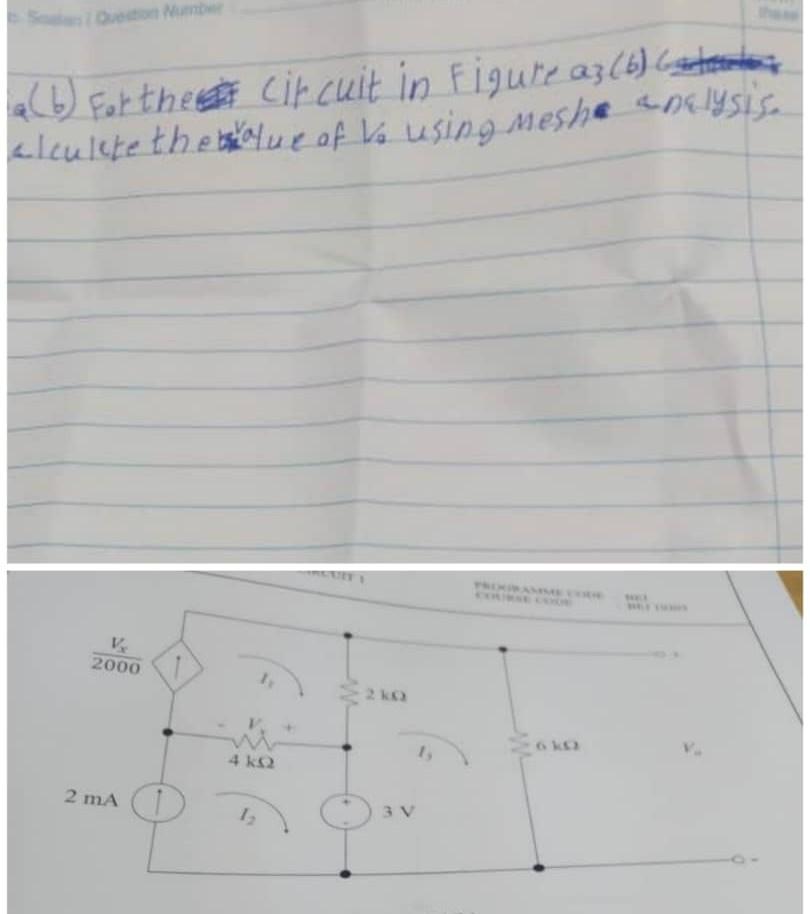 Question Number
a(b) For the circuit in Figure a3(b) C
alculate the value of Vo using Mesh analysis.
CIRCUIT 1
PROGRAMME CODE
COURSE CODE
Vx
2000
I1
2 kΩ
- Vx +
4 kΩ
I3
6 kΩ
Vo
2 mA
I2
+
-
3 V
+
-